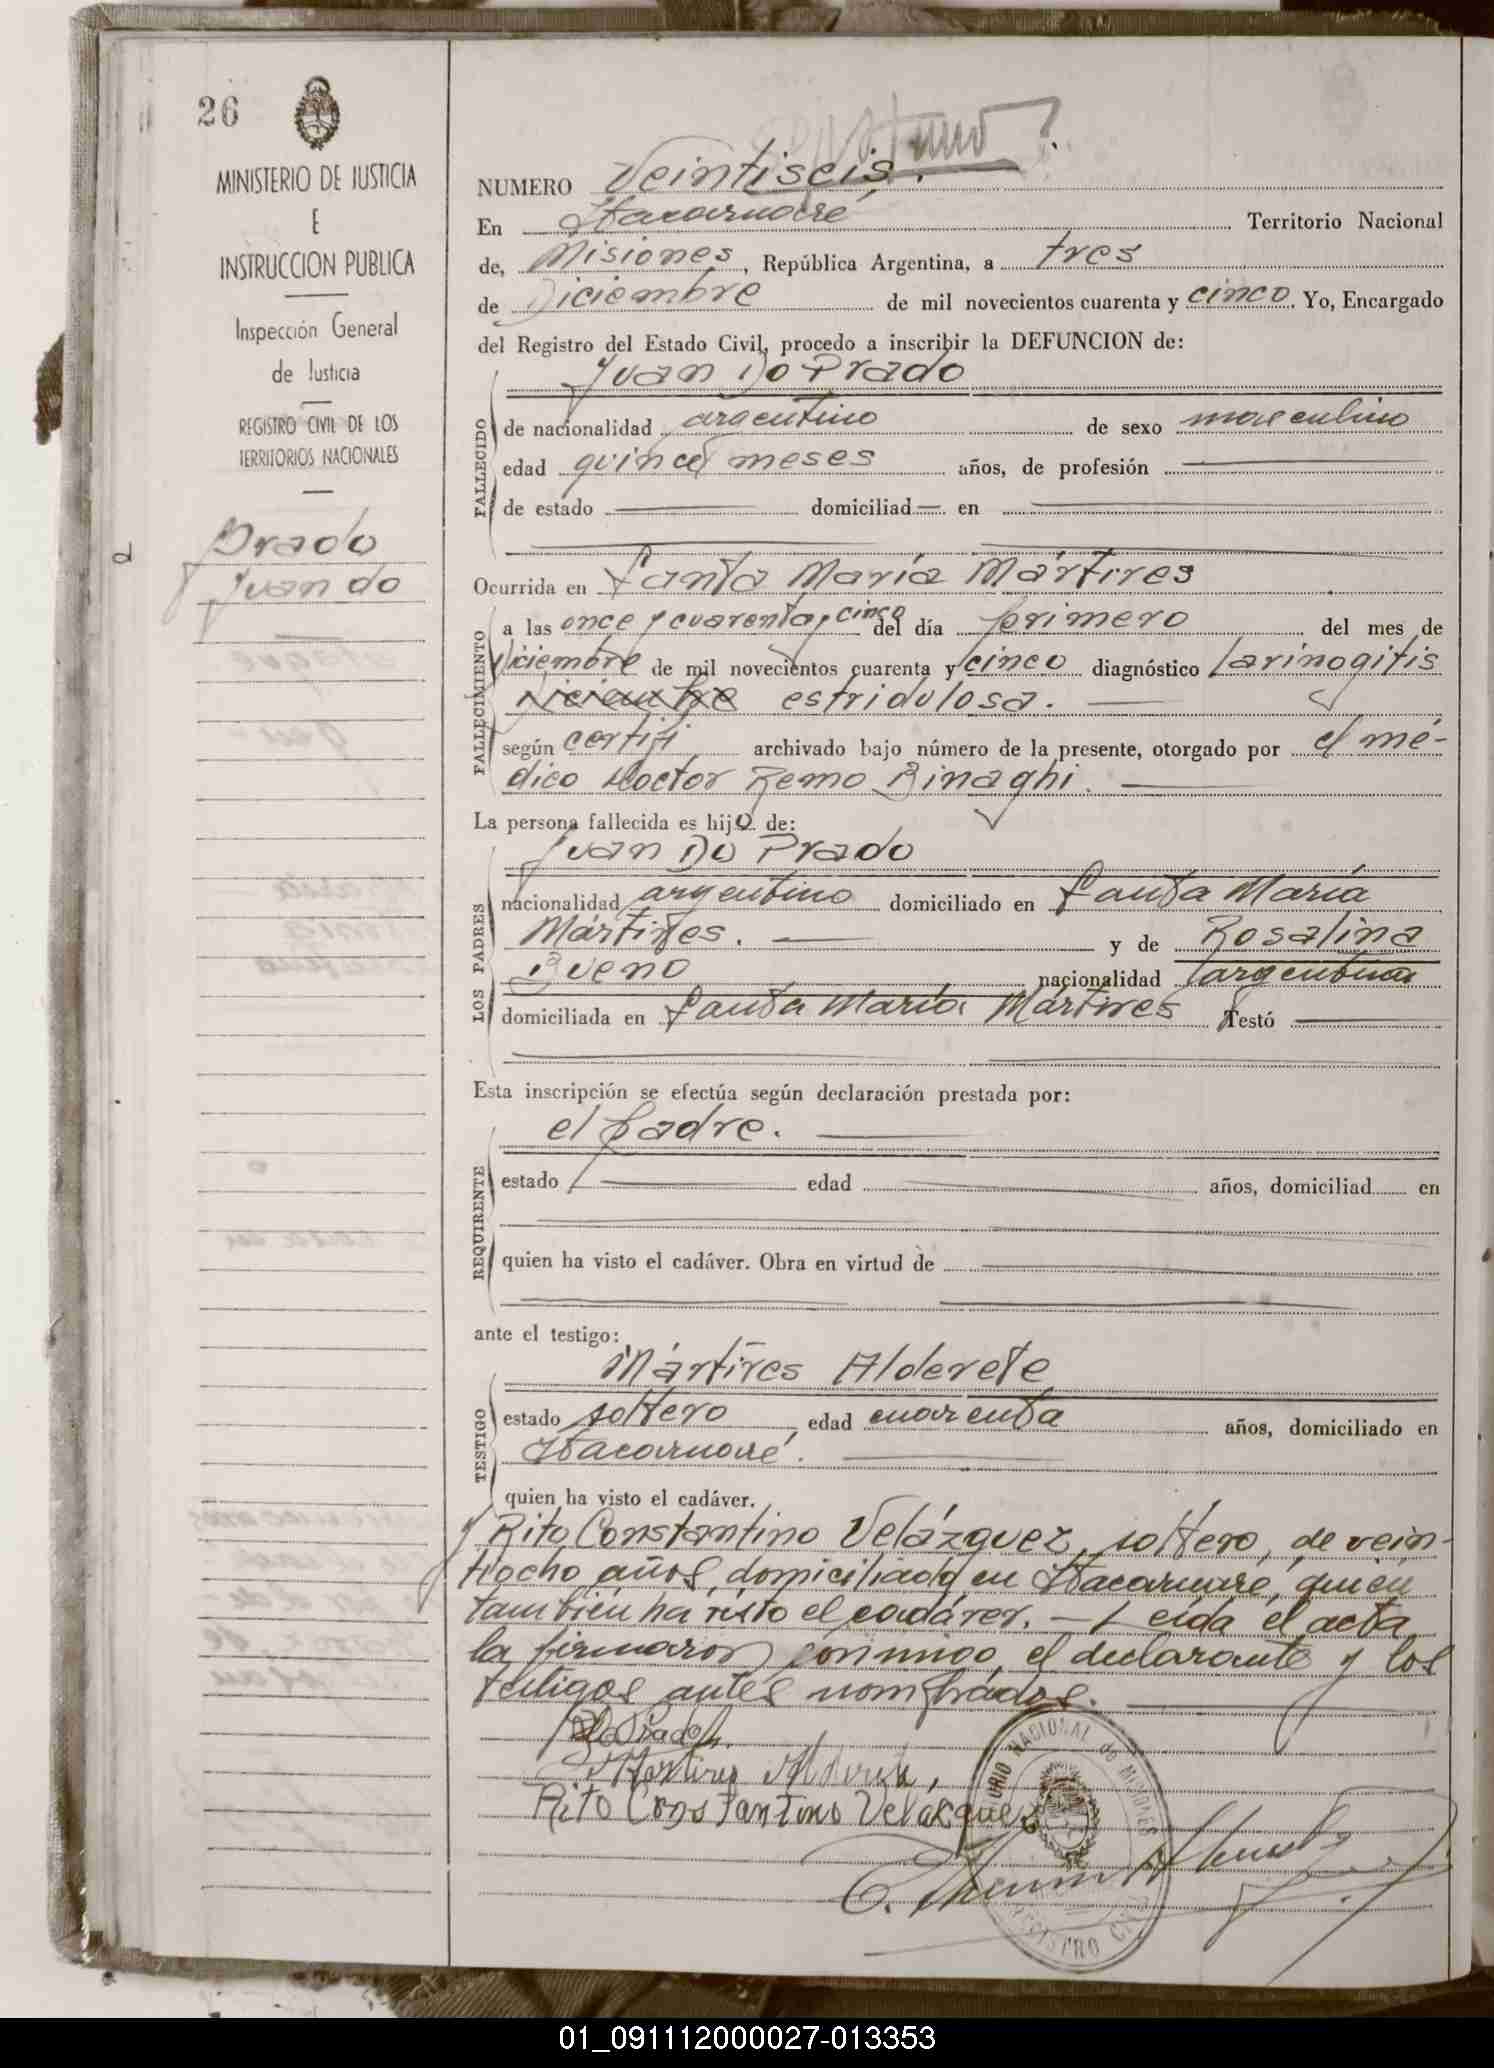 26
MINISTERIO DE JUSTICIA
E
INSTRUCCION PUBLICA
Inspección General
de Justicia
REGISTRO CIVIL DE LOS
TERRITORIOS NACIONALES
Prado
Juan do
NUMERO Veintiseis.
En Itacaruaré Territorio Nacional
de, Misiones, República Argentina, a tres
de Diciembre de mil novecientos cuarenta y cinco. Yo, Encargado
del Registro del Estado Civil, procedo a inscribir la DEFUNCION de:
Juan Do Prado
FALLECIDO
de nacionalidad argentino de sexo masculino
edad quince meses años, de profesión
de estado domiciliad en
Ocurrida en Santa María Mártires
FALLECIMIENTO
a las once y cuarenta y cinco del día primero del mes de
Diciembre de mil novecientos cuarenta y cinco diagnóstico larinogitis
Diciembre estridulosa.
según certifi archivado bajo número de la presente, otorgado por el mé-
dico Doctor Remo Binaghi.
La persona fallecida es hijo de:
Juan Do Prado
LOS PADRES
nacionalidad argentino domiciliado en Santa María
Mártires. y de Rosalina
Bueno nacionalidad argentina
domiciliada en Santa María Mártires Testó
Esta inscripción se efectúa según declaración prestada por:
el padre.
REQUIRENTE
estado edad años, domiciliad en
quien ha visto el cadáver. Obra en virtud de
ante el testigo:
Mártires Alderete
TESTIGO
estado soltero edad cuarenta años, domiciliado en
Itacaruaré.
quien ha visto el cadáver.
y Rito Constantino Velázquez, soltero, de vein-
tiocho años, domiciliado en Itacaruaré, quien
también ha visto el cadáver. - Leída el acta
la firmaron conmigo el declarante y los
testigos antes nombrados.
Rito Constantino Velasquez
REGISTRO CIVIL
NACIONAL de MISIONES
01_091112000027-013353